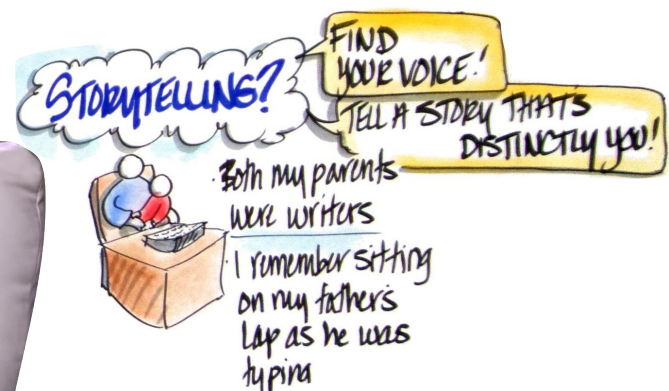 STORYTELLING?
FIND
YOUR VOICE!
TELL A STORY THAT'S
DISTINCTLY YOU!
Both my parents
were writers
I remember sitting
on my father's
lap as he was
typing